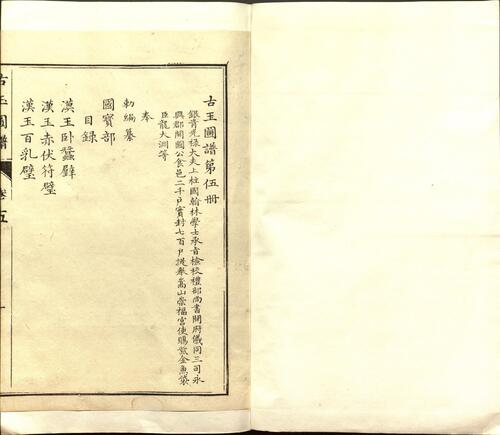 古玉圖譜第伍冊
銀青光祿大夫上柱國翰林學士承旨檢校禮部尚書開府儀同三司永
興郡開國公食邑二千戶實封七百戶提舉嵩山崇福宮使賜紫金魚袋
臣龍大淵等
奉
勅編纂
國寶部
目錄
漢玉臥蠶璧
漢玉赤伏符璧
漢玉百乳璧
古玉圖譜
卷五
一